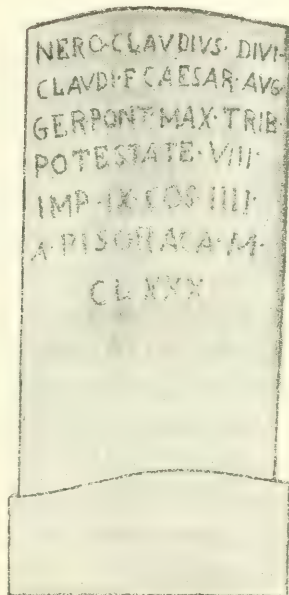 NERO·CLAVDIVS·DIVI·
CLAVDI·F·CAESAR·AVG
GER PONT·MAX·TRIB·
POTESTATE·VIII·
IMP·IX·COS·IIII·
A·PISORACA·M·
CLXXX